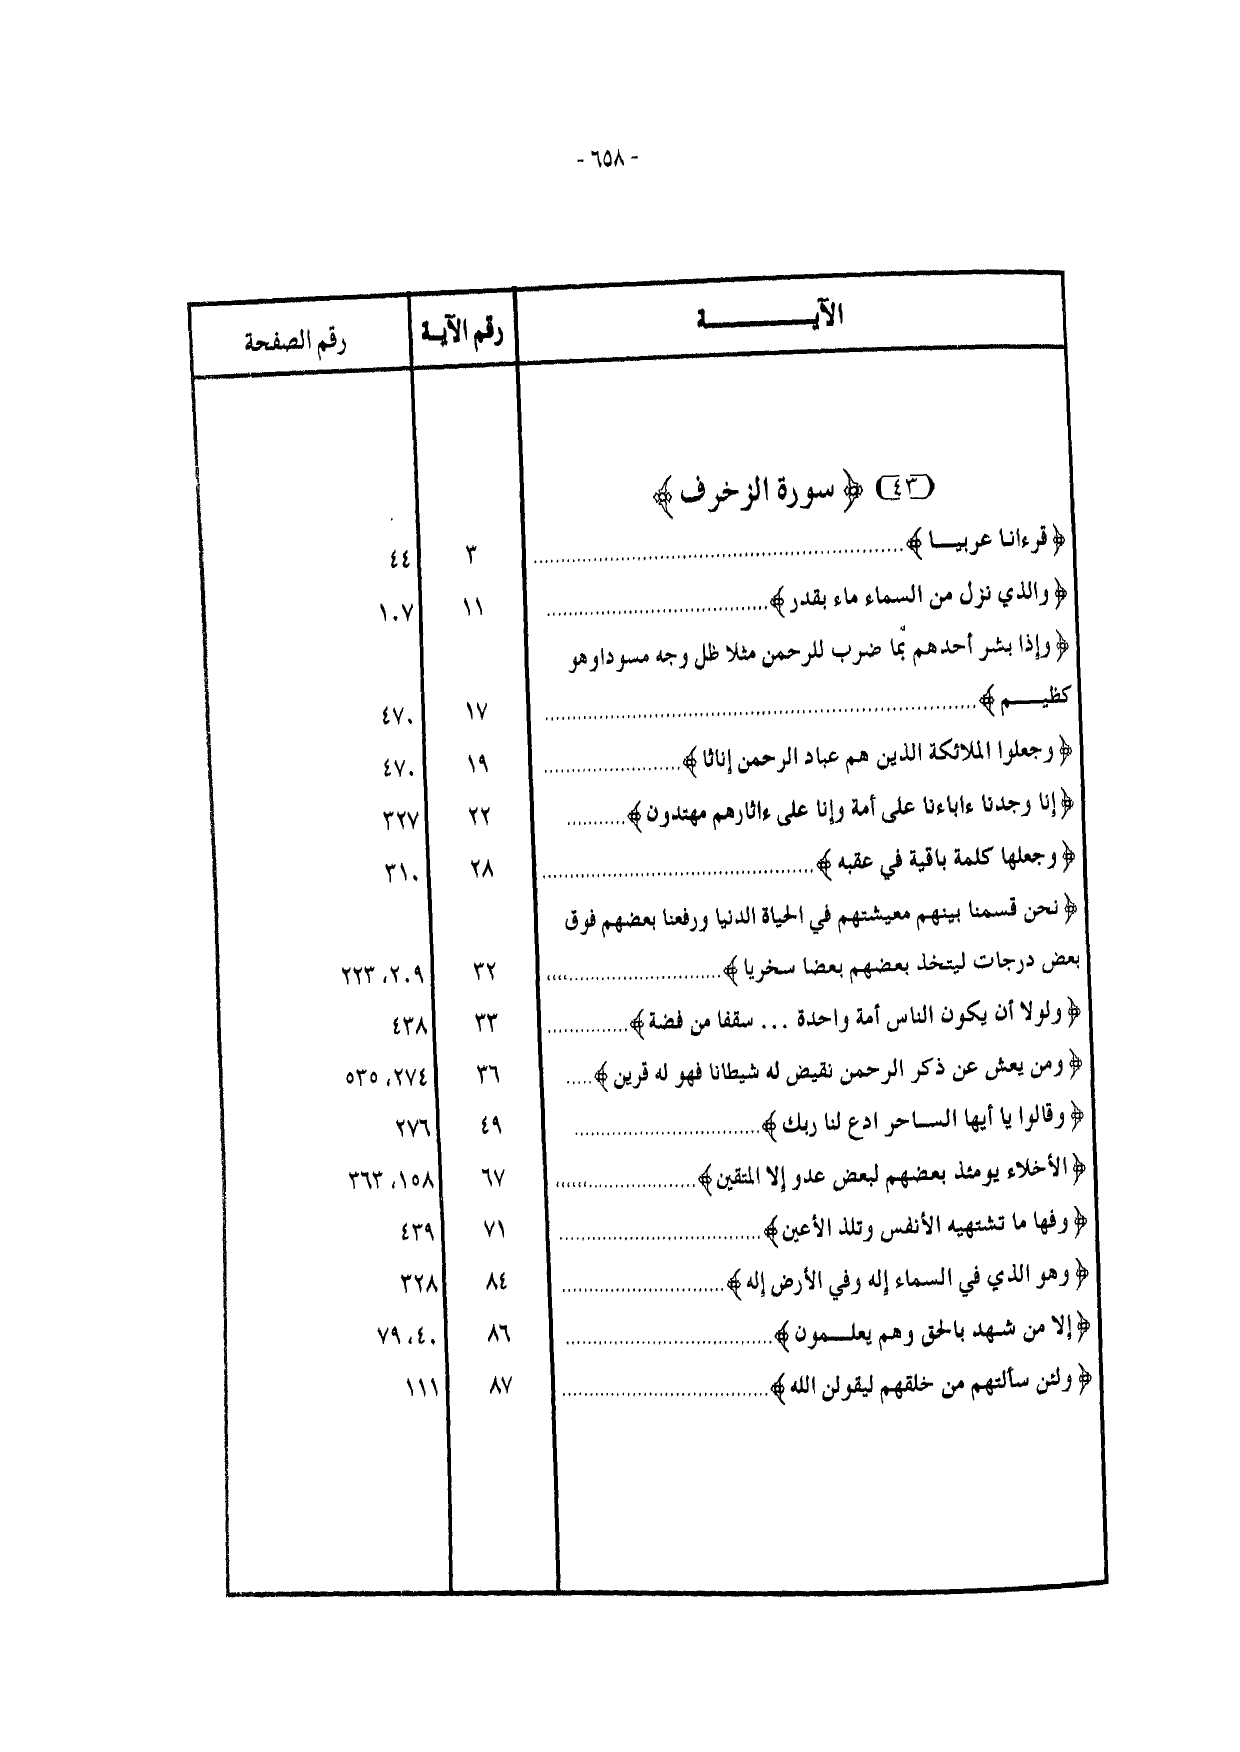 - ٦٥٨ -
الآيــــــــــة رقم الآيـة رقم الصفحة
(٤٣) ﴿ سورة الزخرف ﴾
﴿ قرءانا عربيـــا ﴾ ........ ٣ ٤٤
﴿ والذي نزل من السماء ماء بقدر ﴾ ........ ١١ ١٠٧
﴿ وإذا بشر أحدهم بما ضرب للرحمن مثلا ظل وجه مسوداوهو
كظيـــــم ﴾ ........ ١٧ ٤٧٠
﴿ وجعلوا الملائكة الذين هم عباد الرحمن إناثا ﴾ ........ ١٩ ٤٧٠
﴿ إنا وجدنا ءاباءنا على أمة وإنا على ءاثارهم مهتدون ﴾ ........ ٢٢ ٣٢٧
﴿ وجعلها كلمة باقية في عقبه ﴾ ........ ٢٨ ٣١٠
﴿ نحن قسمنا بينهم معيشتهم في الحياة الدنيا ورفعنا بعضهم فوق
بعض درجات ليتخذ بعضهم بعضا سخريا ﴾ ........ ٣٢ ٢٠٩، ٢٢٣
﴿ ولولا أن يكون الناس أمة واحدة ... سقفا من فضة ﴾ ........ ٣٣ ٤٣٨
﴿ ومن يعش عن ذكر الرحمن نقيض له شيطانا فهو له قرين ﴾ ..... ٣٦ ٢٧٤، ٥٣٥
﴿ وقالوا يا أيها الساحر ادع لنا ربك ﴾ ........ ٤٩ ٢٧٦
﴿ الأخلاء يومئذ بعضهم لبعض عدو إلا المتقين ﴾ ........ ٦٧ ١٥٨، ٣٦٣
﴿ وفها ما تشتهيه الأنفس وتلذ الأعين ﴾ ........ ٧١ ٤٣٩
﴿ وهو الذي في السماء إله وفي الأرض إله ﴾ ........ ٨٤ ٣٢٨
﴿ إلا من شهد بالحق وهم يعلـــمون ﴾ ........ ٨٦ ٤٠، ٧٩
﴿ ولئن سألتهم من خلقهم ليقولن الله ﴾ ........ ٨٧ ١١١